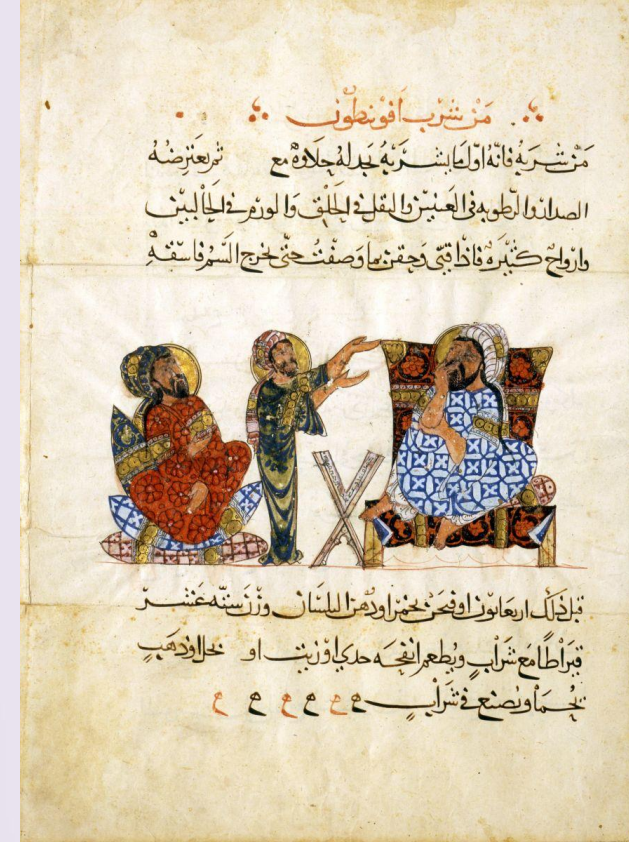 من شرب افونطون
مَن شربهُ فانّهُ اوّل ما يشربهُ يجد لهُ حلاوة مع ثم يعترضهُ
الصداع والرطوبه فى العينين والثقل فى الحلق والورم فى الجالبين
وارواح كثيرة فاذا قيى وحقن بما وصفت حتّى يخرج السّم فاسقه
قبل ذلك اوفيحن بخمر اودهن البلسان وزن ستّه عشر
قيراطا مع شراب ويطعم انفحه جدي اوزيت او بخل اودهب
يُحما ويصنع فى شراب